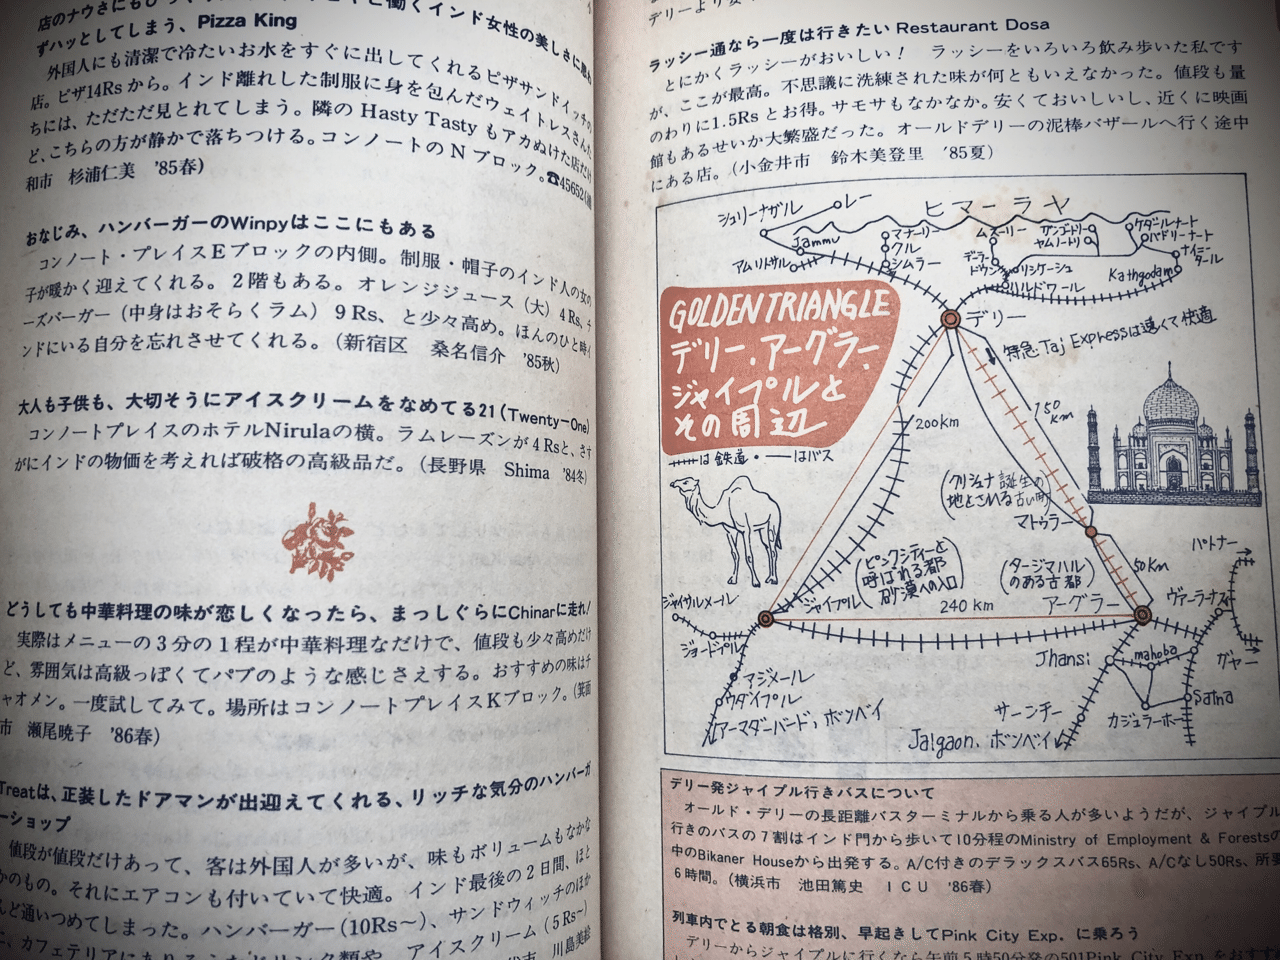 店のナウさにもび
と働くインド女性の美しさに思わ
ずハッとしてしまう、Pizza King
外国人にも清潔で冷たいお水をすぐに出してくれるピザサンドイッチの
店。ピザ14Rsから。インド離れした制服に身を包んだウェイトレスさんた
ちには、ただただ見とれてしまう。隣のHasty Tastyもアカぬけた店だけ
ど、こちらの方が静かで落ちつける。コンノートのNブロック。☎45652
和市 杉浦仁美 '85春)
おなじみ、ハンバーガーのWinpyはここにもある
コンノート・プレイスEブロックの内側。制服・帽子のインド人の女の
子が暖かく迎えてくれる。2階もある。オレンジジュース(大)4Rs、チ
ーズバーガー(中身はおそらくラム)9Rs、と少々高め。ほんのひと時イ
ンドにいる自分を忘れさせてくれる。(新宿区 桑名信介 '85秋)
大人も子供も、大切そうにアイスクリームをなめてる21(Twenty-One)
コンノートプレイスのホテルNirulaの横。ラムレーズンが4Rsと、さす
がにインドの物価を考えれば破格の高級品だ。(長野県 Shima '84冬)
どうしても中華料理の味が恋しくなったら、まっしぐらにChinarに走れ!
実際はメニューの3分の1程が中華料理なだけで、値段も少々高めだけ
ど、雰囲気は高級っぽくてパブのような感じさえする。おすすめの味はチ
ャオメン。一度試してみて。場所はコンノートプレイスKブロック。(箕面
市 瀬尾暁子 '86春)
Treatは、正装したドアマンが出迎えてくれる、リッチな気分のハンバーガ
ーショップ
値段が値段だけあって、客は外国人が多いが、味もボリュームもなかな
かのもの。それにエアコンも付いていて快適。インド最後の2日間、ほと
んど通いつめてしまった。ハンバーガー(10Rs~)、サンドウィッチのほか
に、カフェテリアにあるようなドリンク類や、アイスクリーム(5Rs~)
川島美絵
デリーより
ラッシー通なら一度は行きたい Restaurant Dosa
とにかくラッシーがおいしい! ラッシーをいろいろ飲み歩いた私です
が、ここが最高。不思議に洗練された味が何ともいえなかった。値段も量
のわりに1.5Rsとお得。サモサもなかなか。安くておいしいし、近くに映画
館もあるせいか大繁盛だった。オールドデリーの泥棒バザールへ行く途中
にある店。(小金井市 鈴木美登里 '85夏)
シュリーナガル
レー
ヒマーラヤ
Jammu
アムリトサル
マナーリー
クル
シムラー
ムスーリー
デーラードウン
ガンゴトリー
ヤムノートリー
リシケーシュ
ハルドワール
ケダールナート
バドリーナート
ナイニータール
Kathgodam
GOLDEN TRIANGLE
デリー・アーグラー・
ジャイプルと
その周辺
は鉄道・―はバス
デリー
特急Taj Expressは速くて快適
200km
150km
(クリシュナ誕生の
地とされる古い町)
マトゥラー
(ピンクシティーと
呼ばれる都
砂漠への入口)
(タージマハル
のある古都)
50Km
ジャイプル
240km
アーグラー
ジャイサルメール
ジョードプル
アジメール
ウダイプル
アーマダーバード、ボンベイ
Jhansi
mahoba
サーンチー
カジュラーホー
Satna
Jalgaon、ボンベイ
パトナー
ヴァーラナス
ガヤー
デリー発ジャイプル行きバスについて
オールド・デリーの長距離バスターミナルから乗る人が多いようだが、ジャイプル
行きのバスの7割はインド門から歩いて10分程のMinistry of Employment & Forestsの
中のBikaner Houseから出発する。A/C付きのデラックスバス65Rs、A/Cなし50Rs、所要
6時間。(横浜市 池田篤史 ICU '86春)
列車内でとる朝食は格別、早起きしてPink City Exp. に乗ろう
デリーからジャイプルに行くなら午前5時50分発の501Pink City Exp.をおすす